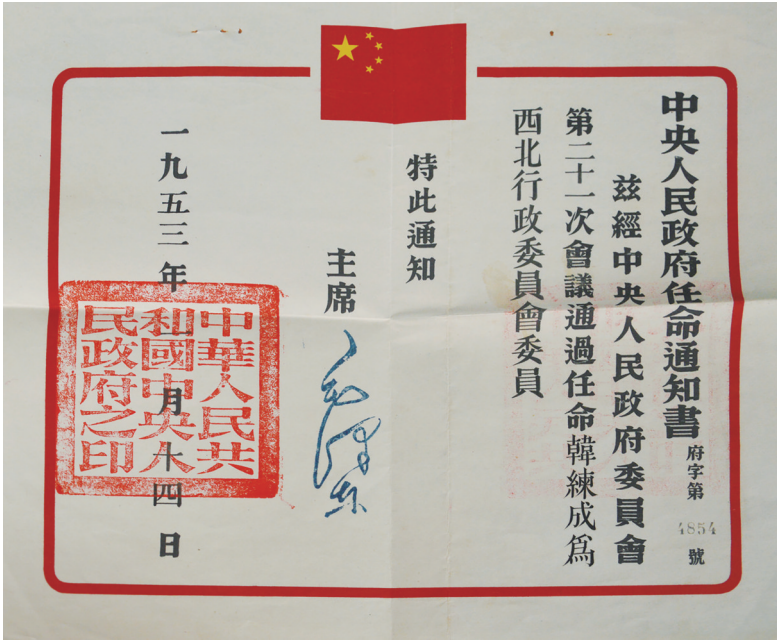 中央人民政府任命通知書
府字第4854號
茲經中央人民政府委員會
第二十一次會議通過任命韓練成爲
西北行政委員會委員
特此通知
主席 毛澤東
一九五三年 月十四日
中華人民共
和國中央人
民政府之印